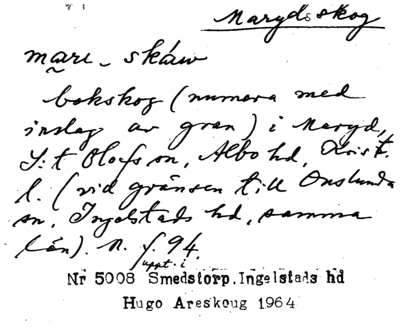 Marydsskog
mari - skåw
bokskog (numera med
inslag av gran) i Maryd,
S:t Olofs sn, Albo hd, Krist.
l. (vid gränsen till Onslunda
sn, Ingelstads hd, samma
län). N. f. 94.
uppt. i
Nr 5008 Smedstorp.Ingelstads hd
Hugo Areskoug 1964